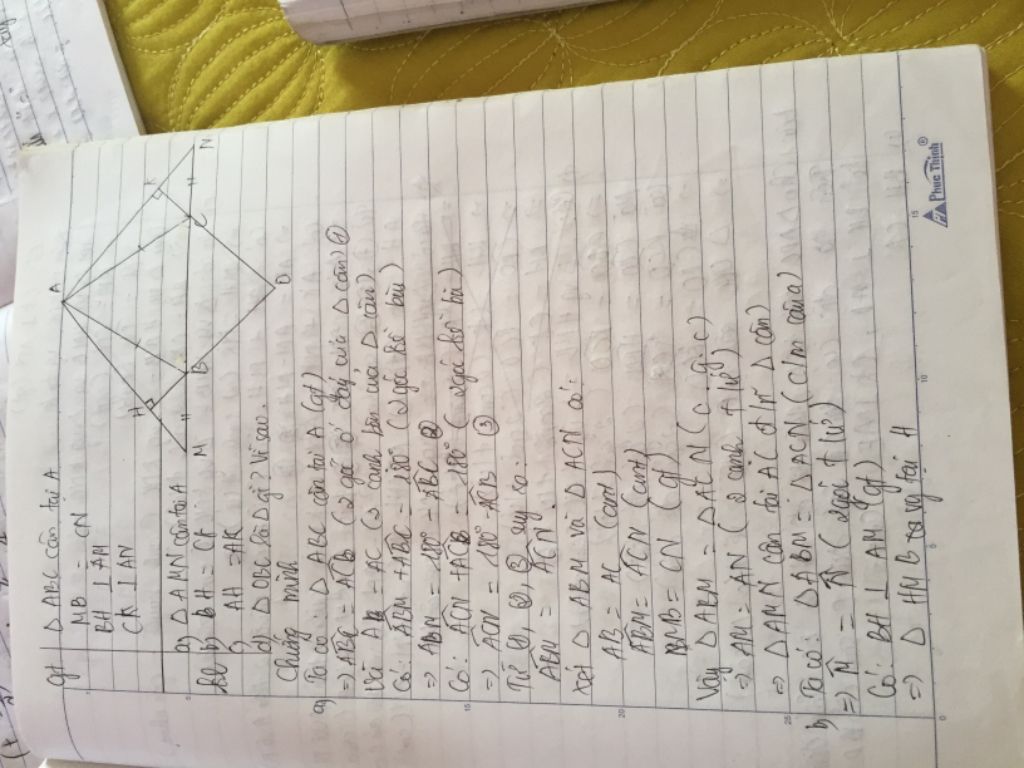 gt | Δ ABC cân tại A
MB = CN
BH ⊥ AM
CK ⊥ AN
KL a) Δ AMN cân tại A
b) BH = CK
c) AH = AK
d) Δ OBC là Δ gì? Vì sao.
Chứng minh
a) Ta có: Δ ABC cân tại A (gt)
⇒ ABC = ACB (2 góc ở đáy của Δ cân) ①
Và AB = AC (2 cạnh bên của Δ cân)
Có: ABM + ABC = 180° (2 góc kề bù)
⇒ ABM = 180° - ABC ②
Có: ACN + ACB = 180° (2 góc kề bù)
⇒ ACN = 180° - ACB ③
Từ ①, ②, ③ suy ra:
ABM = ACN.
Xét Δ ABM và Δ ACN có:
AB = AC (cmt)
ABM = ACN (cmt)
MB = CN (gt)
Vậy Δ ABM = Δ ACN (c.g.c)
⇒ AM = AN (2 cạnh tứ)
⇒ Δ AMN cân tại A
b) Ta có: Δ ABM = Δ ACN (c/m câu a)
⇒ M = N (2 góc tứ)
Có: BH ⊥ AM (gt)
⇒ Δ HMB tại H
A
H
K
M
B
C
N
O
5
10
15
15
20
25
0
Phúc Thịnh ®